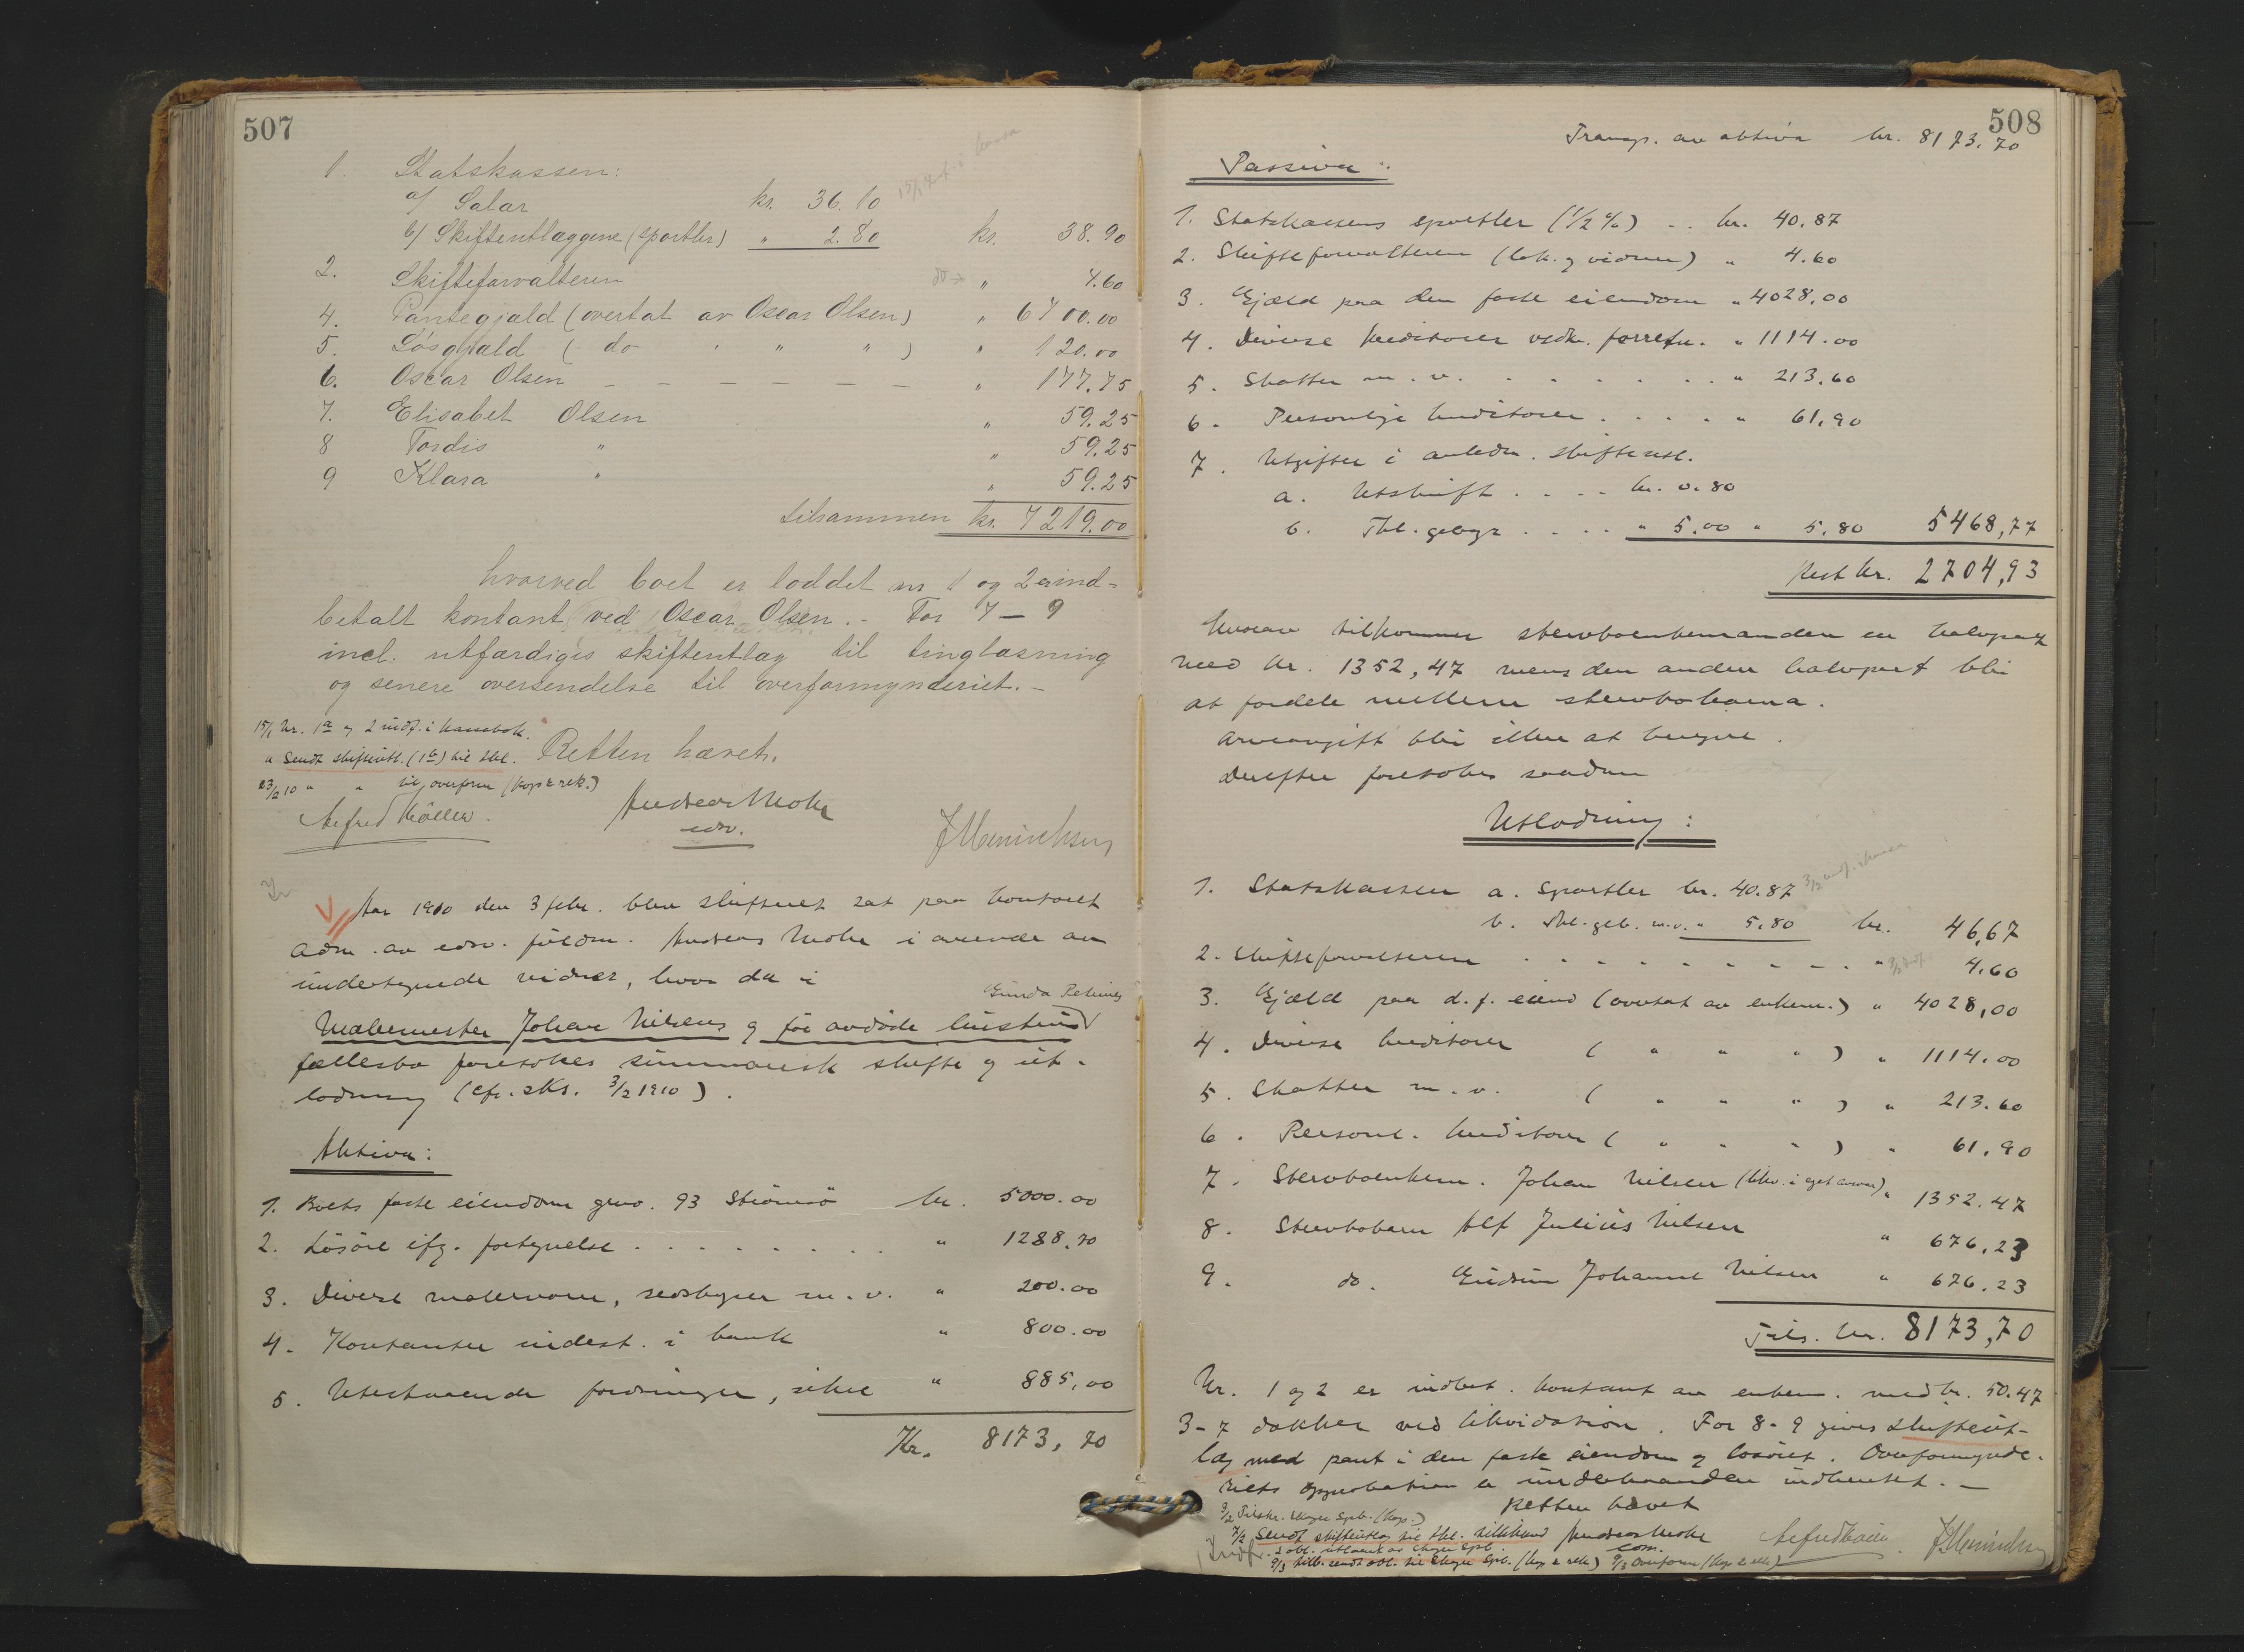 507
1. Statskassen:
a/ Salær kr. 36.10
b/ Skifteutlæggene (sportler) " 2.80 kr. 38.90
2. Skifteforvalteren do " 4.60
4. Pantegjæld (overtat av Oscar Olsen) " 6700.00
5. Løsgjæld ( do " " " ) " 120.00
6. Oscar Olsen – – – – – – " 177.75
7. Elisabet Olsen " 59.25
8 Tordis " " 59.25
9 Klara " " 59.25
tilsammen kr. 7219.00
hvorved boet er loddet nr 1 og 2 er ind=
betalt kontant ved Oscar Olsen. - For 7 – 9
incl. utfærdiges skifteutlæg til tinglæsning
og senere oversendelse til overformynderiet. –
15/1 Nr. 1a og 2 indf. i kassebok.
" Sendt skifteutl. (1b) til tbl.
23/2 10 " " til overform (kop 2 rek.)
Retten hævet.
Alfred Møller.
Andreas Mohr
edsv.
J Hemrichsen
Aar 1910 den 3 febr. blev skifteret sat paa kontoret
adm. av edsv. fuldm. Andreas Mohr i nærvær av
undertegnede vidner, hvor da i
Gunda Petrines
Malermester Johan Nilsens og før avdøde hustrus
fællesbo foretokes summarisk skifte og ut-
lodning (cfr. sks. 3/2 1910).
Aktiva:
1. Boets faste eiendom grno. 93 Strømsø kr. 5000.00
2. Løsøre ifg. fortegnelse . . . . . . . . " 1288.70
3. Diverse malervarer, redskaper m. v. " 200.00
4. Kontanter indest. i bank " 800.00
5. Utestaaende fordringer, sikre " 885,00
Kr. 8173,70
508
Transp. av aktiva kr. 8173.70
Passiva:
1. Statskassens sportler (1/2 %) . . kr. 40.87
2. Skifteforvalteren (lok. og vidner) " 4.60
3. Gjæld paa den faste eiendom " 4028,00
4. Diverse kreditorer vedk. forretn. " 1114.00
5. Skatter m. v. . . . . . . . " 213.60
6. Personlige kreditorer . . . . " 61,90
7. Utgifter i anledn. skifteutl.
a. Utskrift . . . . kr. 0.80
b. Tbl. gebyr . . . . " 5.00 " 5.80 5468,77
Rest kr. 2704,93
Hvorav tilkommer stervboenkemanden en halvpart
med kr. 1352,47 mens den anden halvpart blir
at fordele mellem stervbobarna.
Arveavgift blir ikke at beregne.
Derefter foretokes saadan
Utlodning:
1. Statskassen a. Sportler kr. 40.87
b. Tbl. geb. m.v. " 5,80 kr. 46,67
2. Skifteforvalteren . . . . . . . . . " 4.60
3. Gjæld paa d. f. eiend (overtat av enkem.) " 4028,00
4. Diverse kreditorer ( " " " ) " 1114.00
5. Skatter m. v. ( " " " ) " 213.60
6. Personl. kreditorer ( " " " ) " 61,90
7. Stervboenkem. Johan Nilsen (likv. i eget ansvar) " 1352.47
8. Stervbobarn Alf Julius Nilsen " 676,23
9. do. Gudrun Johanne Nilsen " 676,23
Tils. kr. 8173,70
Nr. 1 og 2 er indbet. kontant av enkem. med kr. 50.47
3-7 dækker ved likvidation. For 8-9 gives skifteut-
læg med pant i den faste eiendom og løsøret. Overformynde-
riets approbation er underhaanden indhentet. –
Retten hævet
7/2 Sendt skifteutlæg til tbl.
Andreas Mohr
edsv.
Alfred Møller.
J Hemrichsen